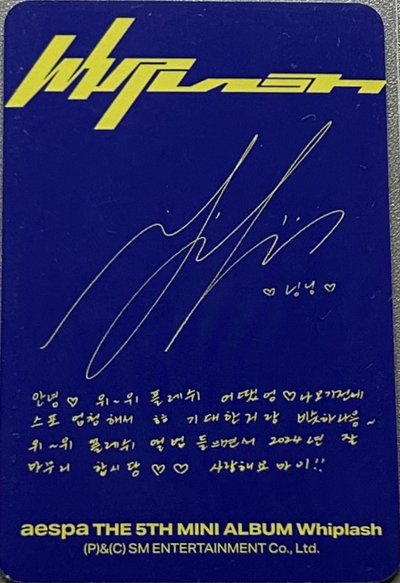 Whiplash
♡ 닝닝 ♡
안녕 ♡ 위~위 플레쉬 어땠엉 ♡ 나오기전에
스포 엄청해서 ㅎㅎ 기대한거랑 비슷하나용~
위~위 플레쉬 앨범 들으면서 2024년 잘
마무리 합시당 ♡ ♡ 사랑해요 마이!!
aespa THE 5TH MINI ALBUM Whiplash
(P)&(C) SM ENTERTAINMENT Co., Ltd.